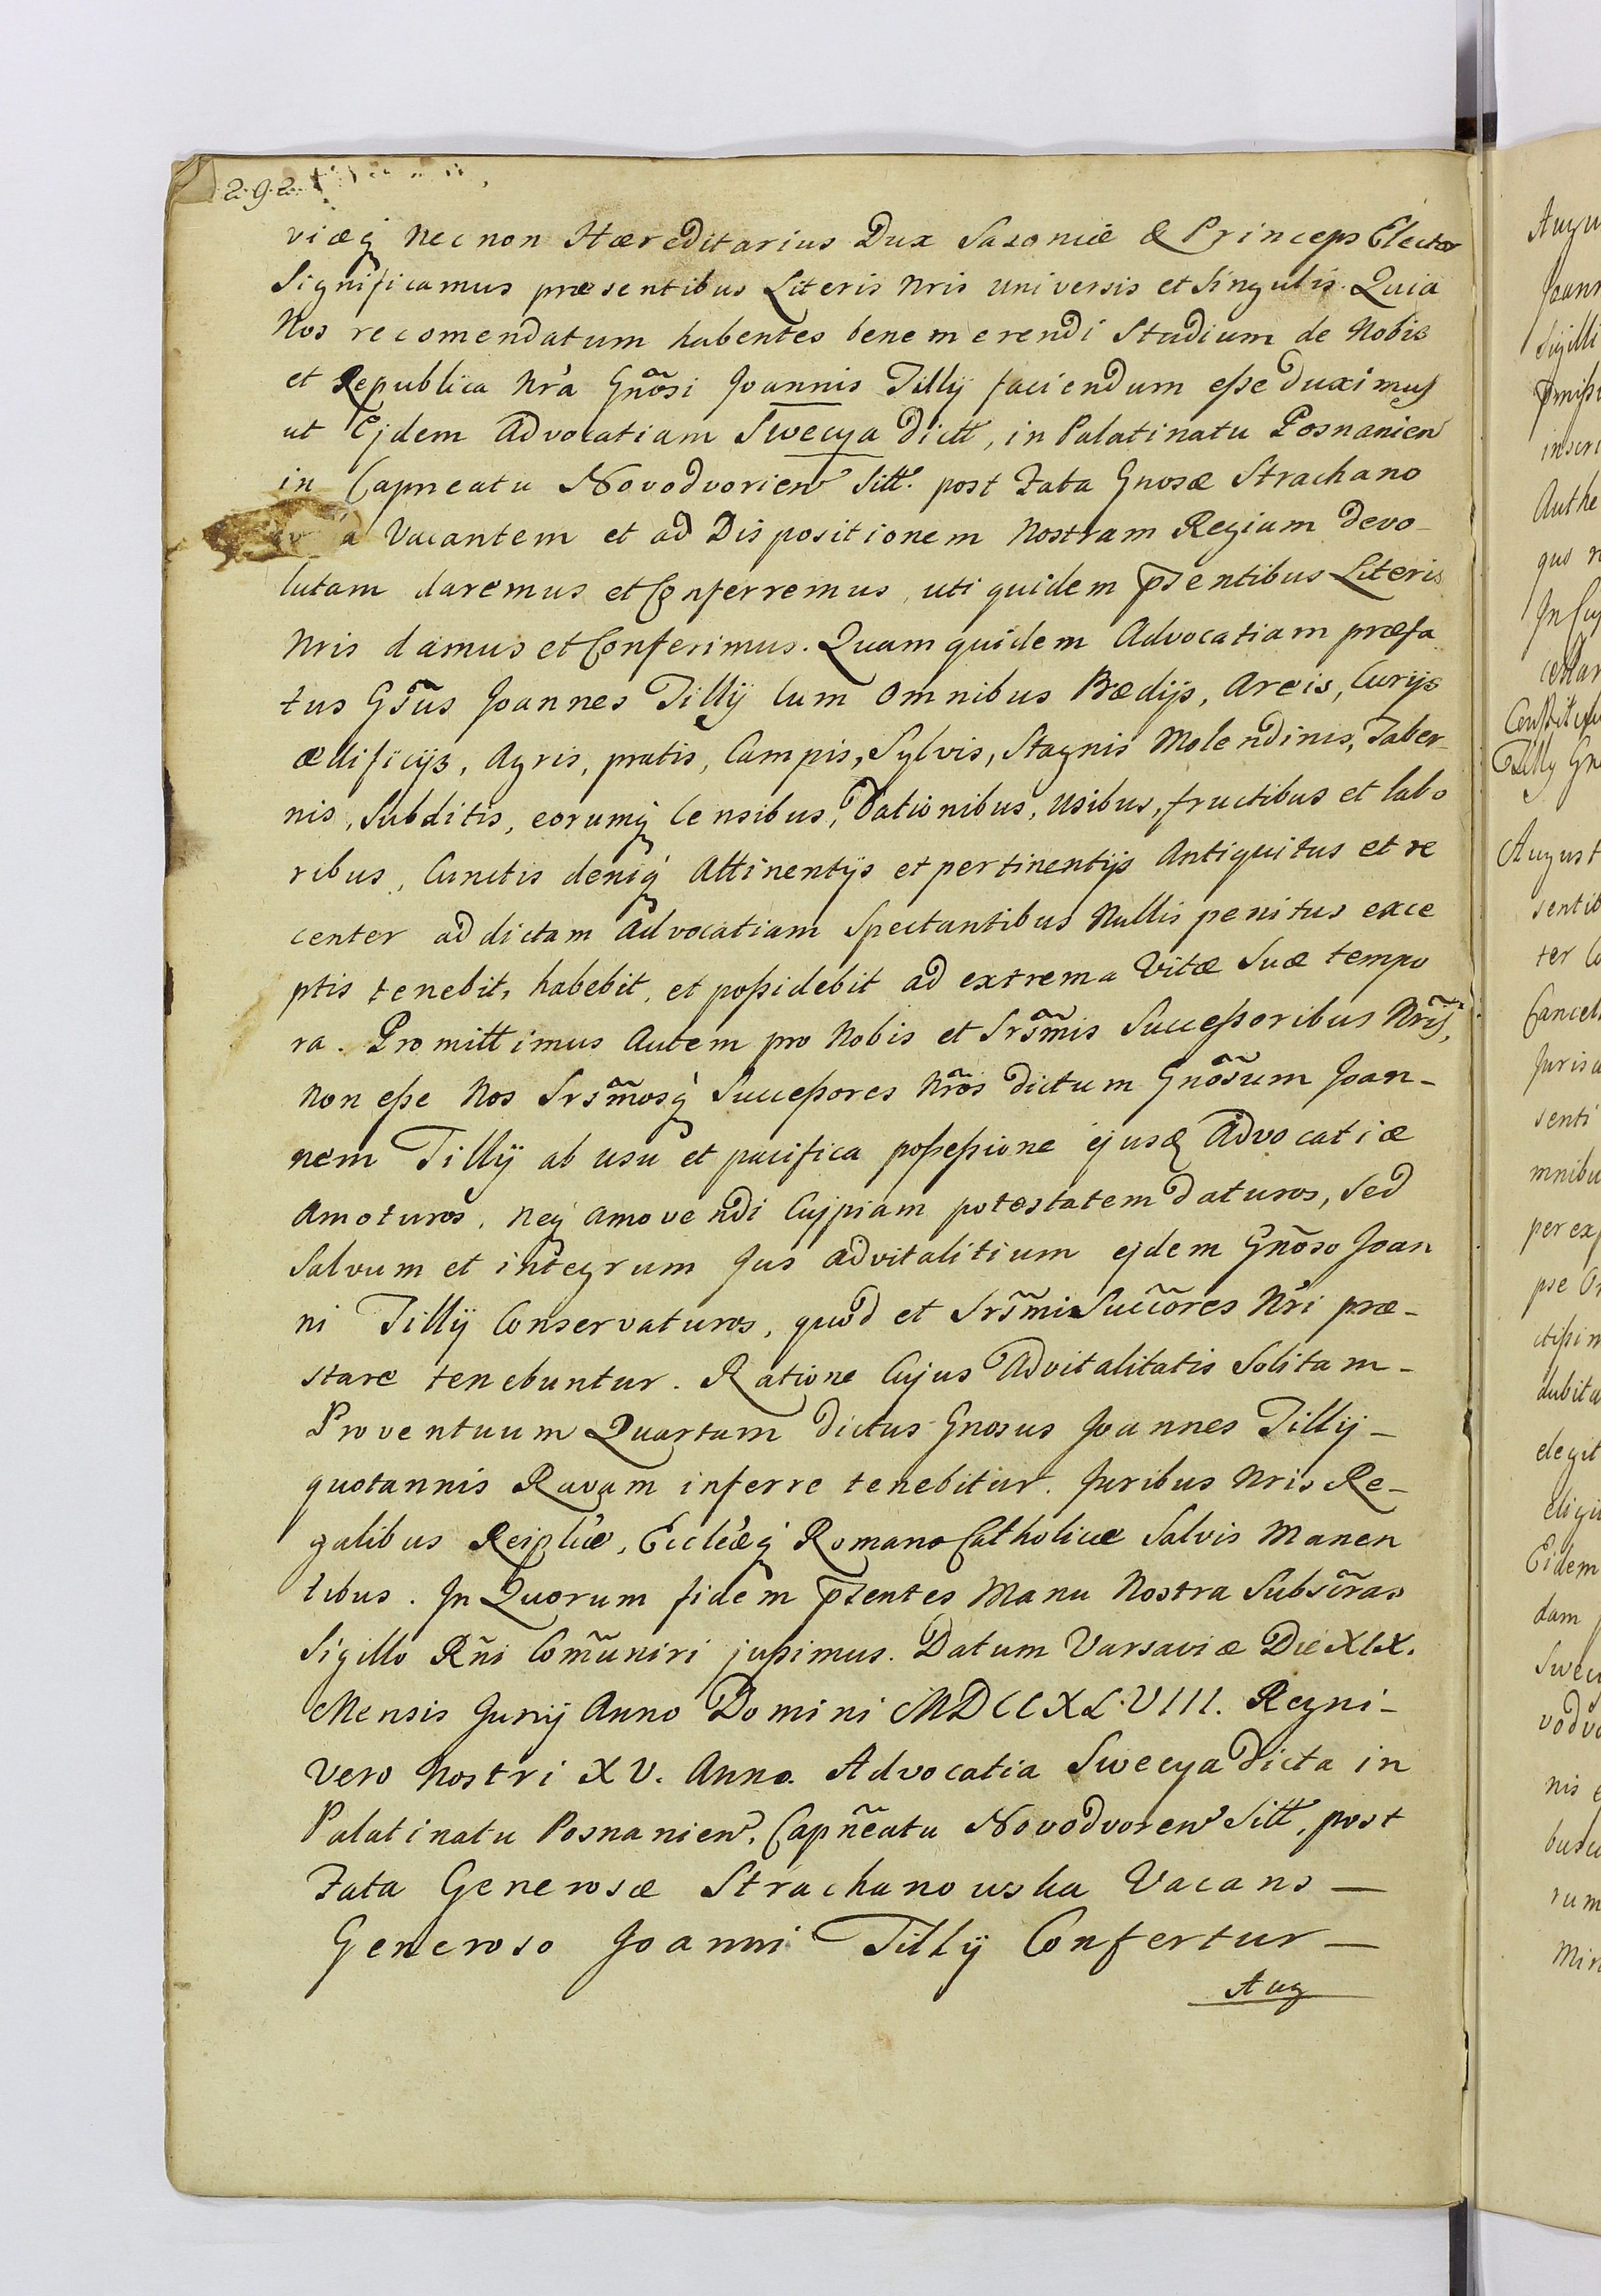 292
viæq necnon Hæreditarius Dux Saxoniæ & Princeps Elector
Significamus præsentibus Literis Nris universis et singulis. Quia
Nos recomendatum habentes bene merendi Studium de Nobis
et Republica Nrã Gnõsi Joannis Tillÿ faciendum eße duximus
ut Ejdem Advocatiam Swecya dictt, in Palatinatu Posnanien
in Capneatu Novodvorien Sitt. post Fata Gnosæ Strachano
a Vacantem et ad Dispositionem Nostram Regiam devo-
lutam daremus et Conferremus, uti quidem pntibus Literis
Nris damus et Conferimus. Quam quidem Advocatiam præfa
tus Gsũs Joannes Tillÿ Cum Omnibus Prædijs, Areis, Curijs
ædificijs, Agris, pratis, Campis, Sylvis, Stagnis Molendinis, Taber-
nis, Subditis, eorumq Censibus, Dationibus, Usibus, fructibus et labo
ribus, Cunctis deniq Attinentÿs et pertinentÿs Antiquitus et re
center ad dictam Advocatiam Spectantibus Nullis penitus exce
ptis tenebit, habebit, et poßidebit ad extrema Vitæ Suæ tempo
ra. Promittimus Autem pro Nobis et Srsm̃is Succeßoribus Nrĩs,
Non eße Nos Srsm̃osq Succeßores Nrõs dictum Gnõsum Joan-
nem Tillÿ ab usu et pacifica poßeßione ejusd Advocatiæ
Amoturos, Neq Amovendi Cujpiam potestatem daturos, Sed
Salvum et integrum Jus advitalitium ejdem Gnõso Joan
ni Tillÿ Conservaturos, quod et Srsm̃i Succõres Nri præ-
stare tenebuntur. Ratione Cujus Advitalitatis Solitam-
Proventuum Quartam dictus Gnosus Joannes Tillÿ-
quotannis Ravam inferre tenebitur. Juribus Nris Re-
galibus Reiplicæ, Eccleæq Romano Catholicæ Salvis Manen
tibus. In Quorum fidem pntes Manu Nostra Subscr̃as
Sigillo Rñi Com̃uniri jußimus. Datum Varsaviæ Die XIX.
Mensis Junij Anno Domini MDCCXLVIII. Regni-
Vero Nostri XV. Anno. Advocatia Swecya dicta in
Palatinatu Posnanien, Capñeatu Novodvoren Sitt, post
Fata Generosæ Strachanowska Vacans —
Generoso Joanni Tillÿ Confertur —
Aug